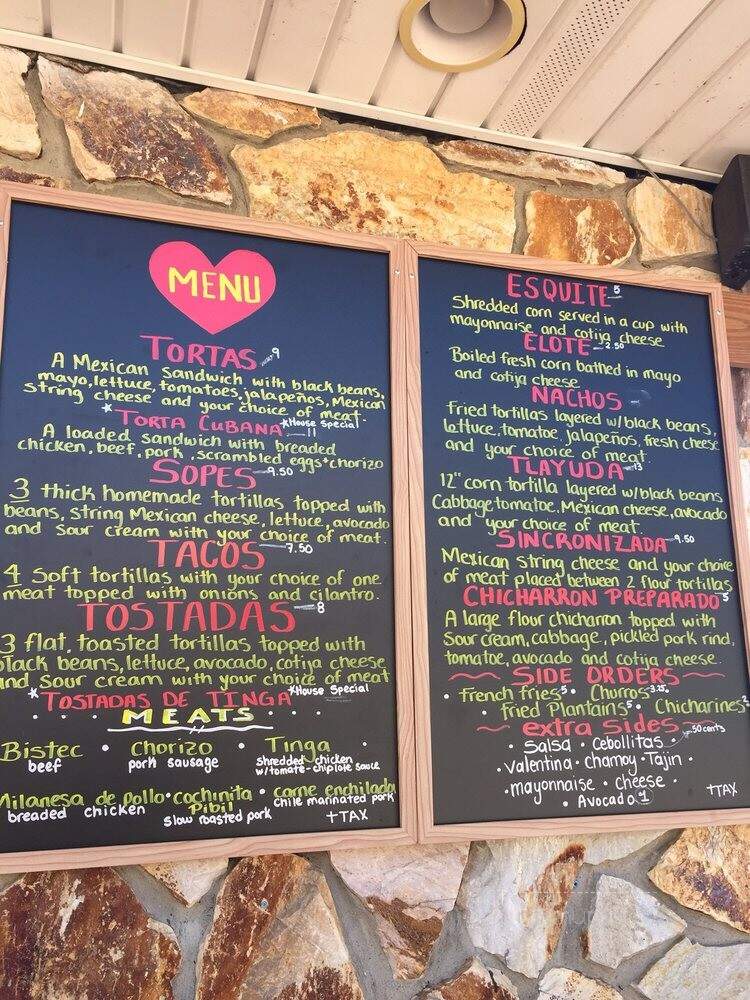 MENU
TORTAS 9
A Mexican Sandwich with black beans,
mayo, lettuce, tomatoes, jalapeños, Mexican
string cheese and your choice of meat.
*TORTA CUBANA *House Special
11
A loaded sandwich with breaded
chicken, beef, pork, scrambled eggs+chorizo
SOPES 9.50
3 thick homemade tortillas topped with
beans, String Mexican cheese, lettuce, avocado
and sour cream with your choice of meat.
TACOS 7.50
4 Soft tortillas with your choice of one
meat topped with onions and cilantro.
TOSTADAS 8
3 flat, toasted tortillas topped with
black beans, lettuce, avocado, cotija cheese
and sour cream with your choice of meat
*TOSTADAS DE TINGA *House Special
MEATS
Bistec • Chorizo • Tinga
beef pork sausage shredded chicken
w/tomate-chiplote sauce
Milanesa de pollo • cochinita • carne enchilada
Pibil
breaded chicken slow roasted pork chile marinated pork
+TAX
ESQUITE 5
Shredded corn served in a cup with
mayonnaise and cotija cheese
ELOTE 2.50
Boiled fresh corn bathed in mayo
and cotija cheese
NACHOS
Fried tortillas layered w/black beans,
lettuce, tomatoe, jalapeños, fresh cheese
and your choice of meat.
TLAYUDA 13
12" corn tortilla layered w/black beans
Cabbage, tomatoe, Mexican cheese, avocado
and your choice of meat.
SINCRONIZADA 9.50
Mexican string cheese and your choice
of meat placed between 2 flour tortillas
CHICHARRON PREPARADO 5
A large flour chicharron topped with
Sour cream, cabbage, pickled pork rind,
tomatoe, avocado and cotija cheese.
SIDE ORDERS
• French fries 5 • Churros 3.25 •
• Fried Plantains 5 • Chicharines
extra sides 50 cents
• Salsa • Cebollitas
• valentina • chamoy • Tajin •
• mayonnaise • cheese •
• Avocado $1
+TAX